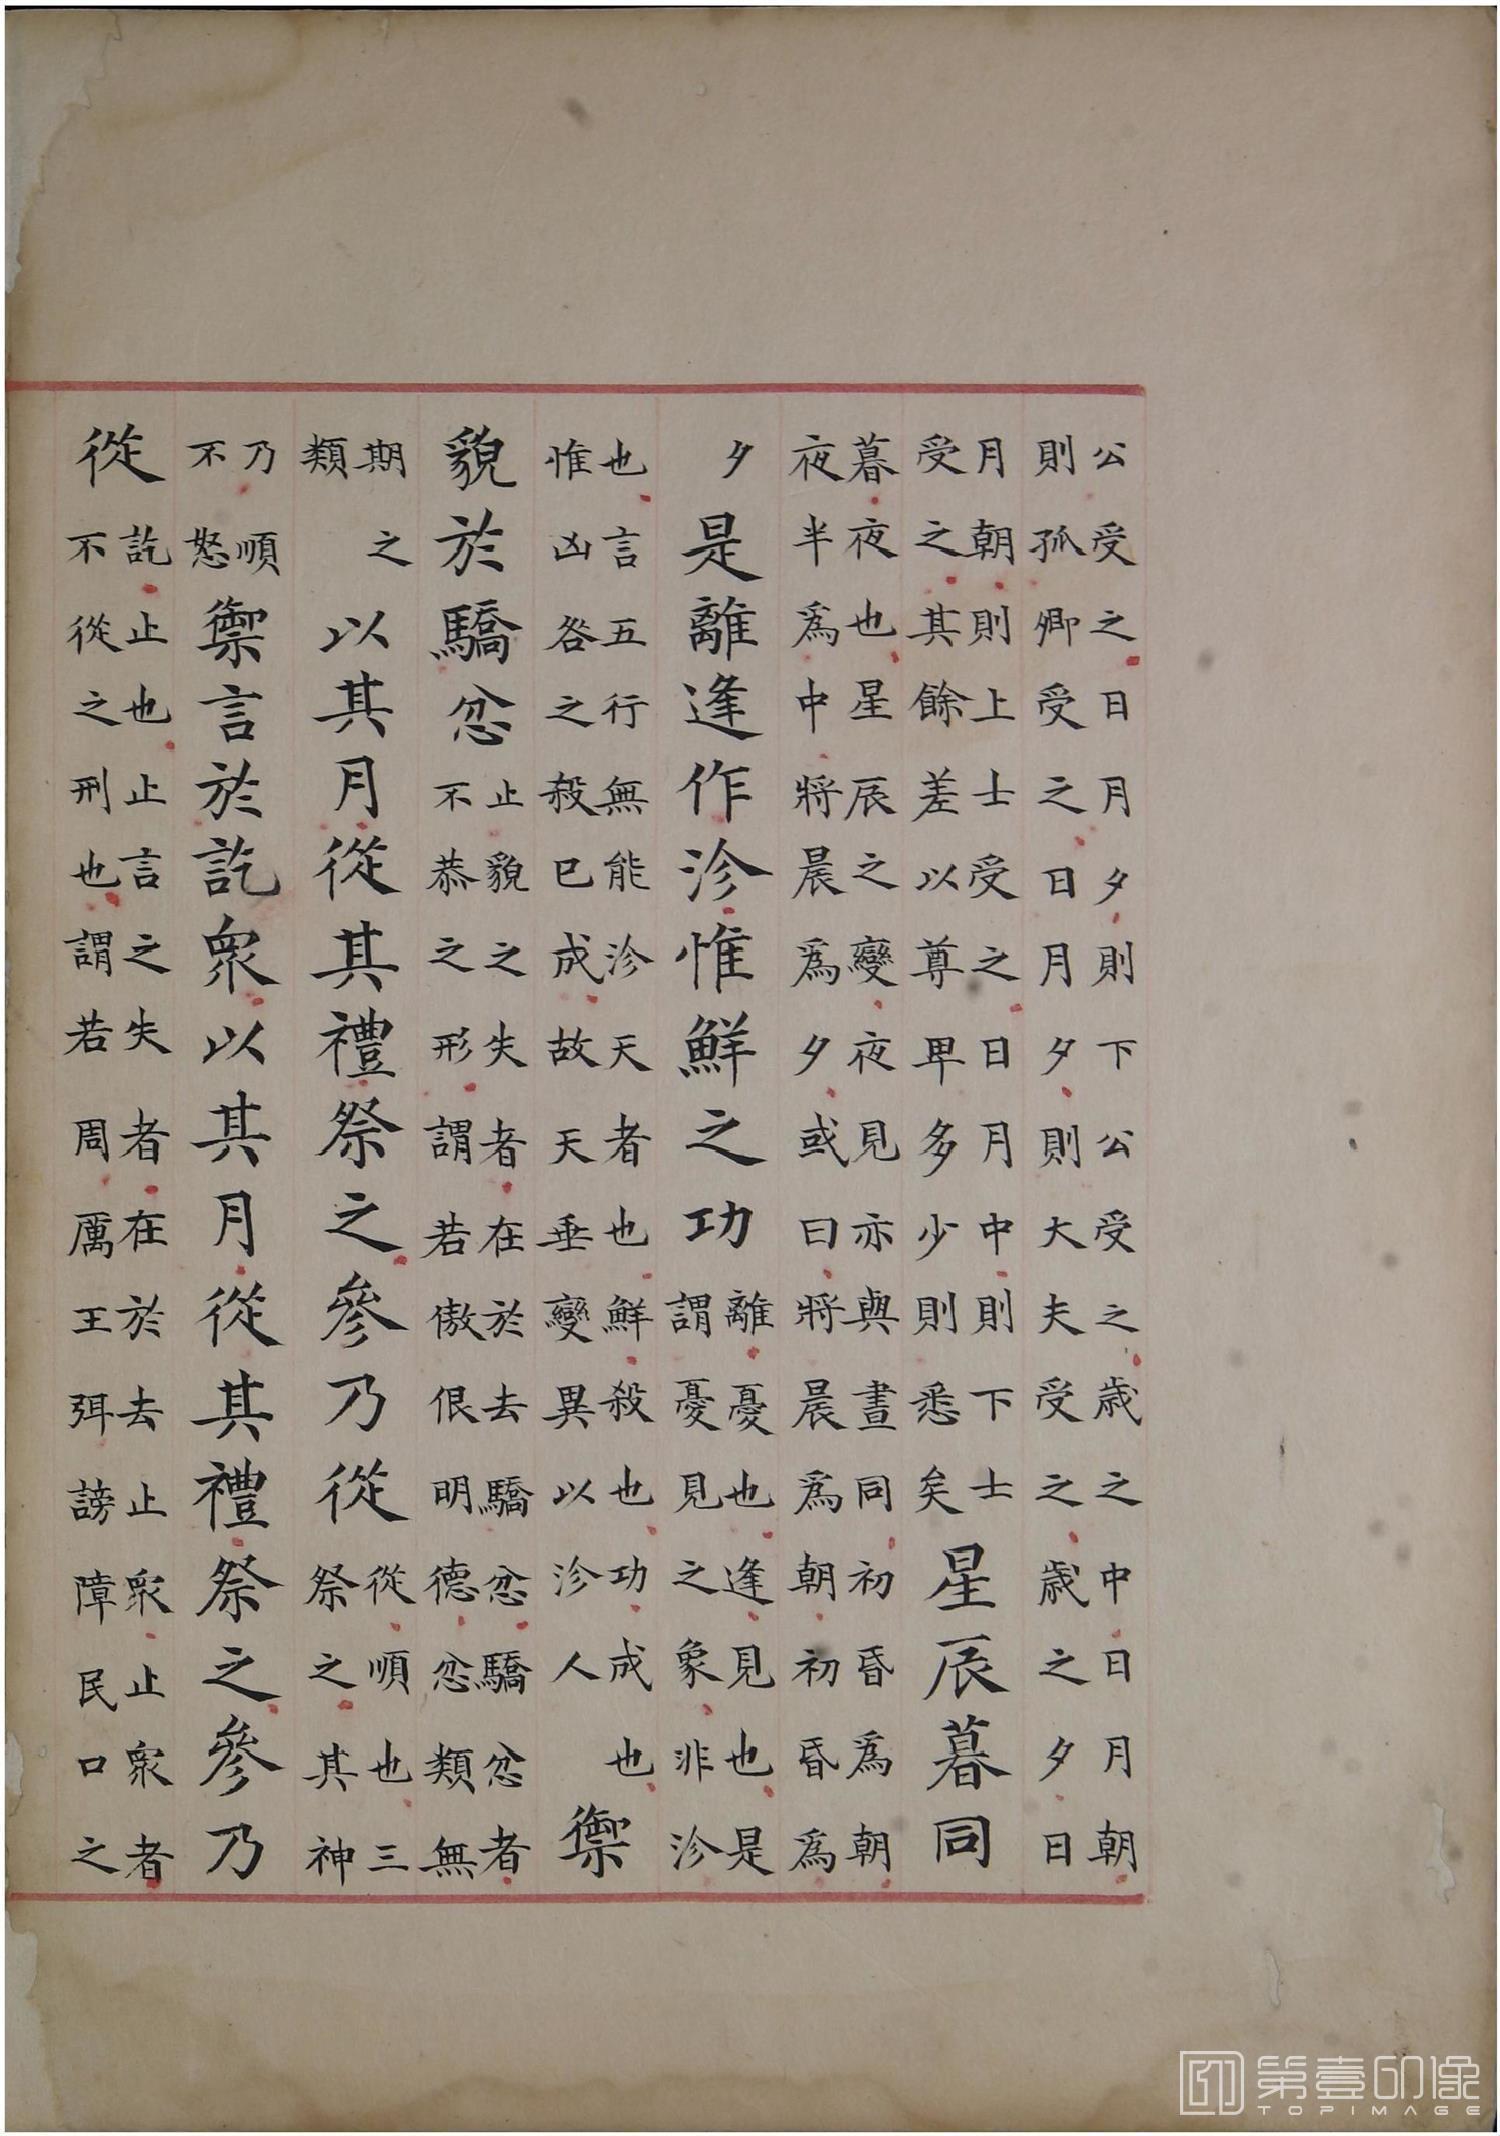 公受之日月夕則下公受之歲之中日月朝
則孤卿受之日月夕則大夫受之歲之夕日
月朝則上士受之日月中則下士
受之其餘差以尊卑多少則悉矣
星辰暮同
暮夜也星辰之變夜見亦與晝同初昏爲朝
夜半爲中將晨爲夕或曰將晨爲朝初昏爲
夕
是離逢作沴惟鮮之功
離憂也逢見也是
謂憂見之象非沴
也言五行無能沴天者也鮮殺也功成也
惟凶咎之殺已成故天垂變異以沴人
禦
貌於驕忿
止貌之失者在於去驕忿驕忿者
不恭之形謂若傲佷明德忿類無
期之
類
以其月從其禮祭之參乃從
從順也三
祭之其神
乃順
不怒
禦言於訖衆以其月從其禮祭之參乃
從
訖止也止言之失者在於去止衆止衆者
不從之刑也謂若周厲王弭謗障民口之
第壹印像
TOPIMAGE